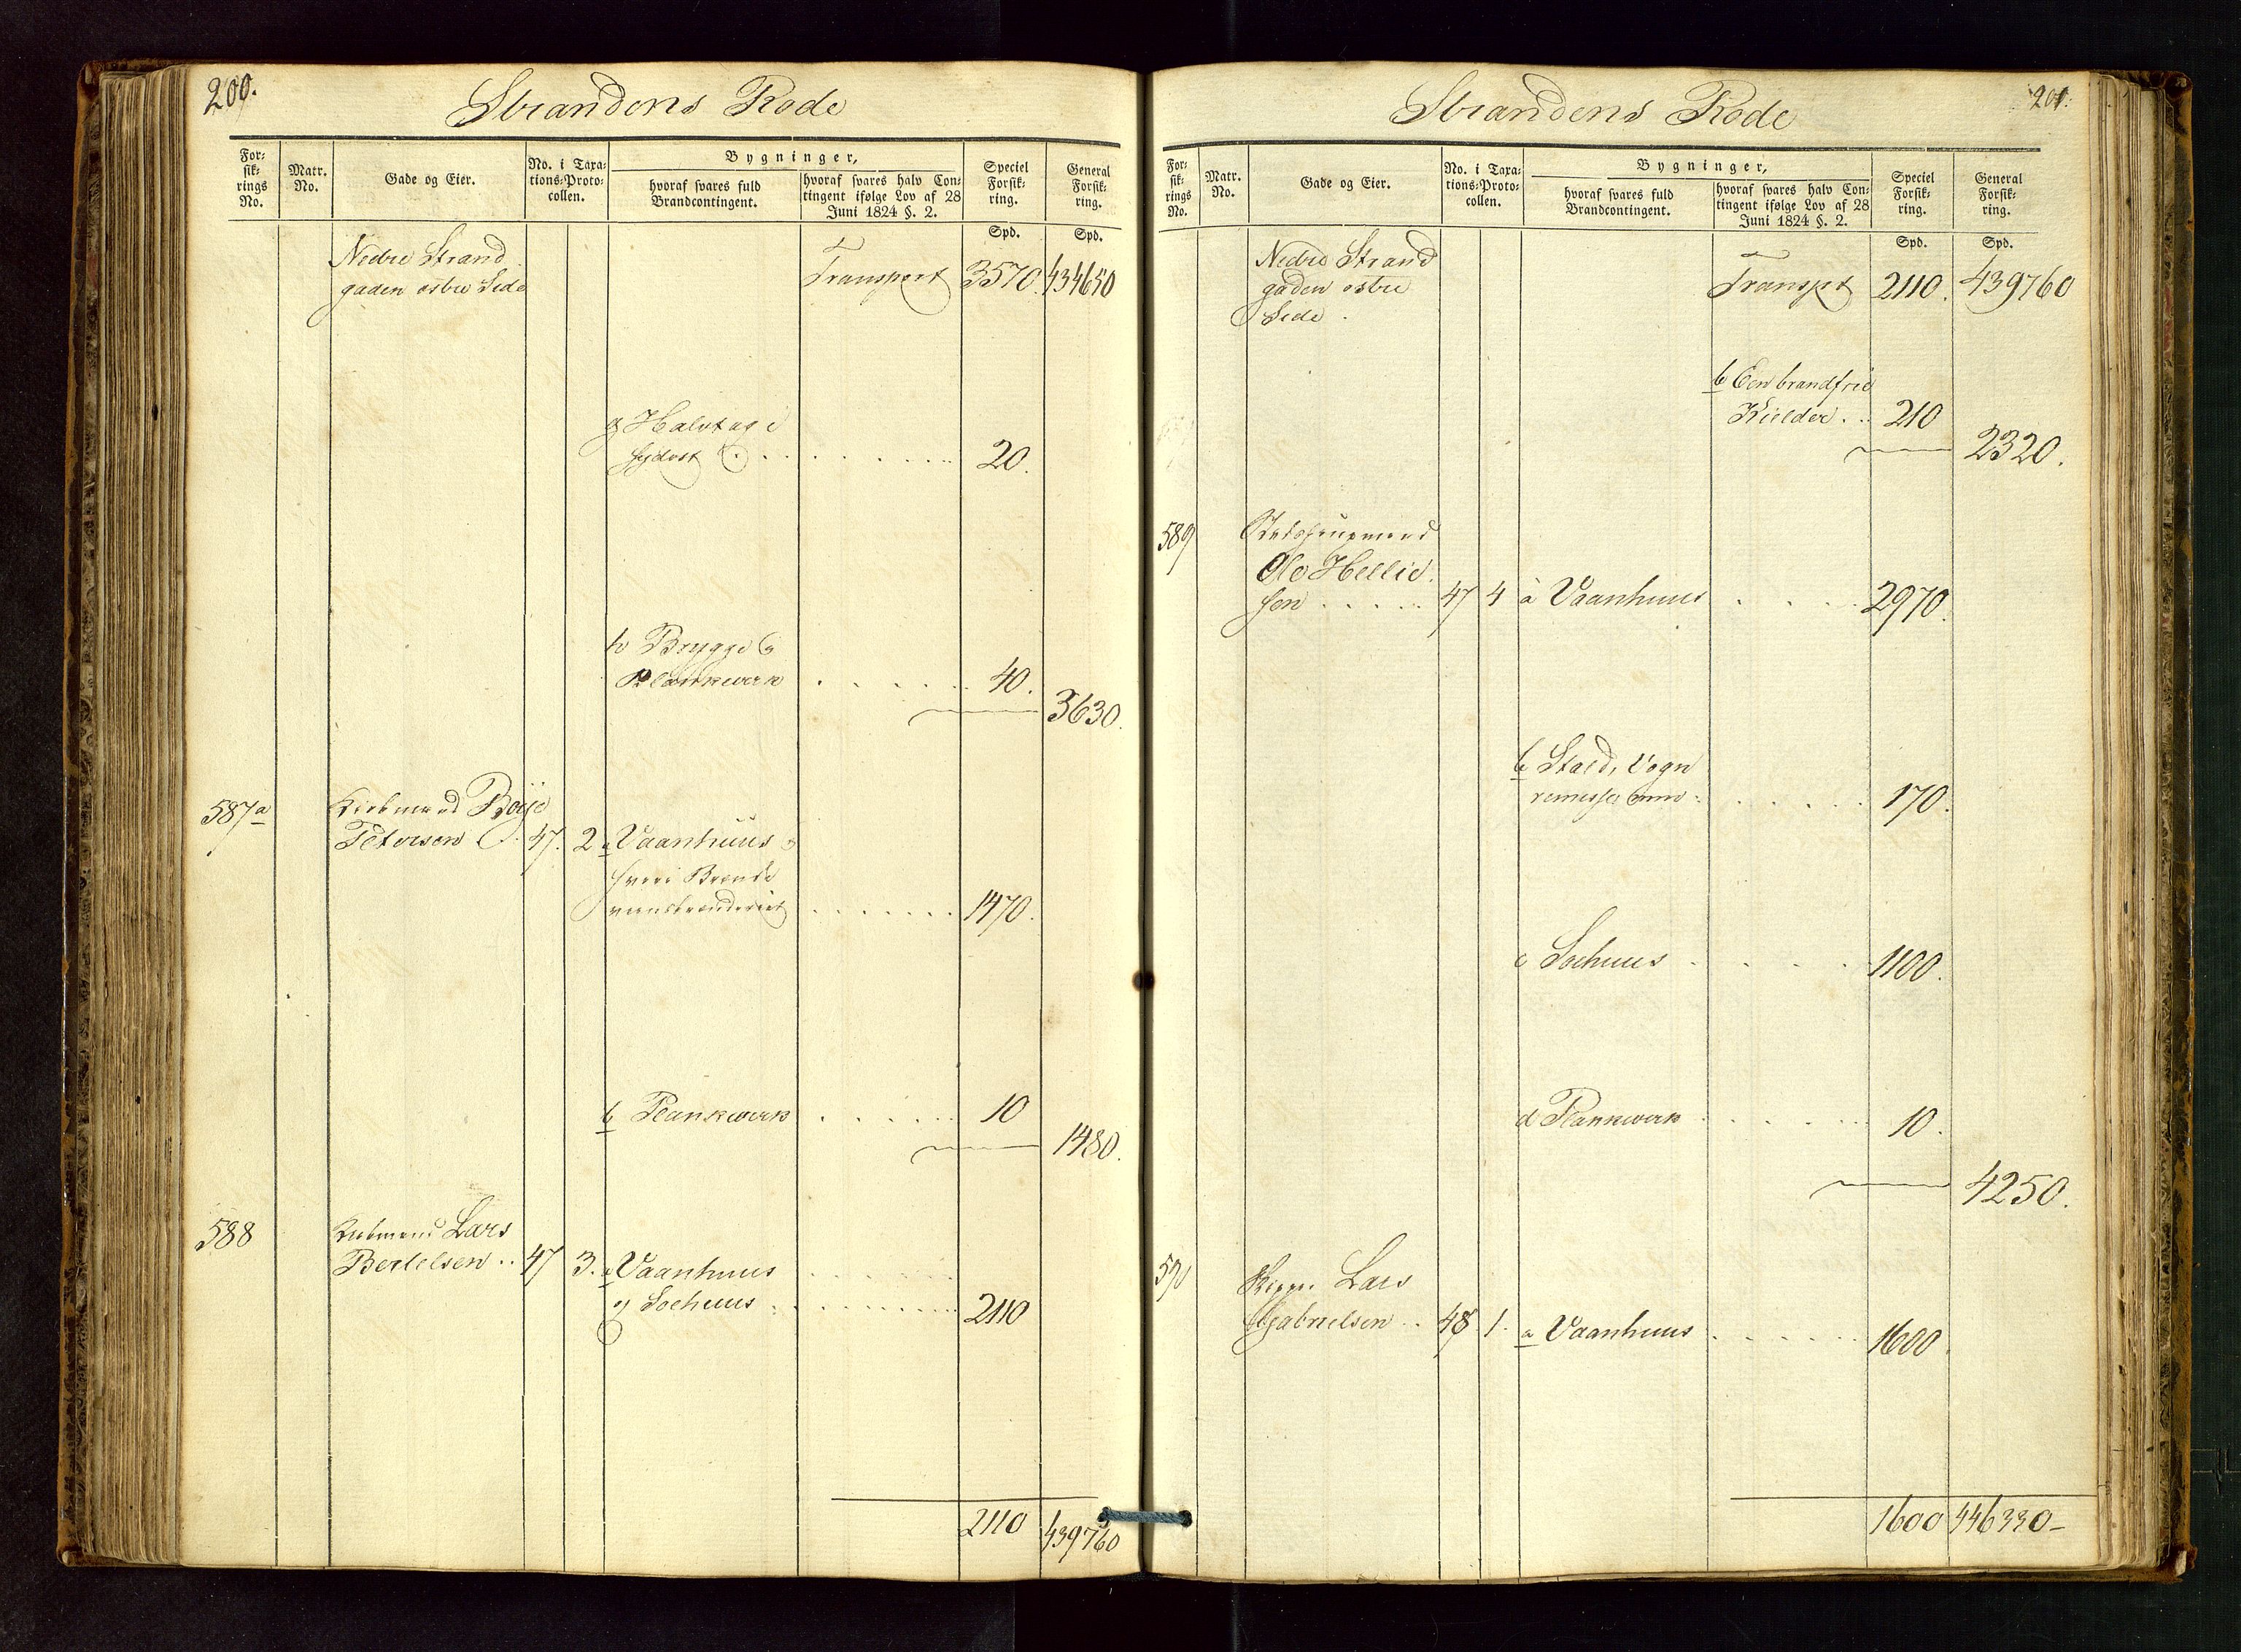 200.
Strandens Rode
For:
sik:
rings
No.
Matr.
No.
Gade og Eier.
No. i Taxa:
tions:Proto:
collen.
Bygninger,
hvoraf svares fuld
Brandcontingent.
hvoraf svares halv Con:
tingent ifølge Lov af 28
Juni 1824 §. 2.
Speciel
Forsik:
ring.
General
Forsik:
ring.
Spd.
Spd.
Nedre Strand
gaden østre Side
Transport 3570. 434650
g Halvtag i
sydost . . . . . . . . 20.
h Brygge og
Plankwerk . . . . . 40.
3630.
587a Kiøbmand Børje
Petersen . 47. 2 a Vaanhuus
hvori Brænde
viinsbrænderiet . . . . . . . 1470.
b Plankwerk . . . . . 10
1480.
588 Kiøbmand Lars
Bertelsen .. 47 3. a Vaanhuus . . . . . .
og Søehuus . . . . . . . . . 2110
2110 439760
201.
Strandens Rode
For:
sik:
rings
No.
Matr.
No.
Gade og Eier.
No. i Taxa:
tions:Proto:
collen.
Bygninger,
hvoraf svares fuld
Brandcontingent.
hvoraf svares halv Con:
tingent ifølge Lov af 28
Juni 1824 §. 2.
Speciel
Forsik:
ring.
General
Forsik:
ring.
Spd.
Spd.
Nedre Strand
gaden østre
Side .
Transpt 2110. 439760
b Een brandfrie
Kielder . . 210
2320.
589
Ole Hellie
sen . . . . . 47 4 a Vaanhuus . . . . 2970.
b Stald, Vogn
remisse . . . . . . 170.
c Søehuus . . . . 1100.
d Plankwerk . . . . . . 10.
4250.
590 Skipper Lars
Gabrielsen . . 48 1. a Vaanhuus . . . . . . 1600.
1600 446330-